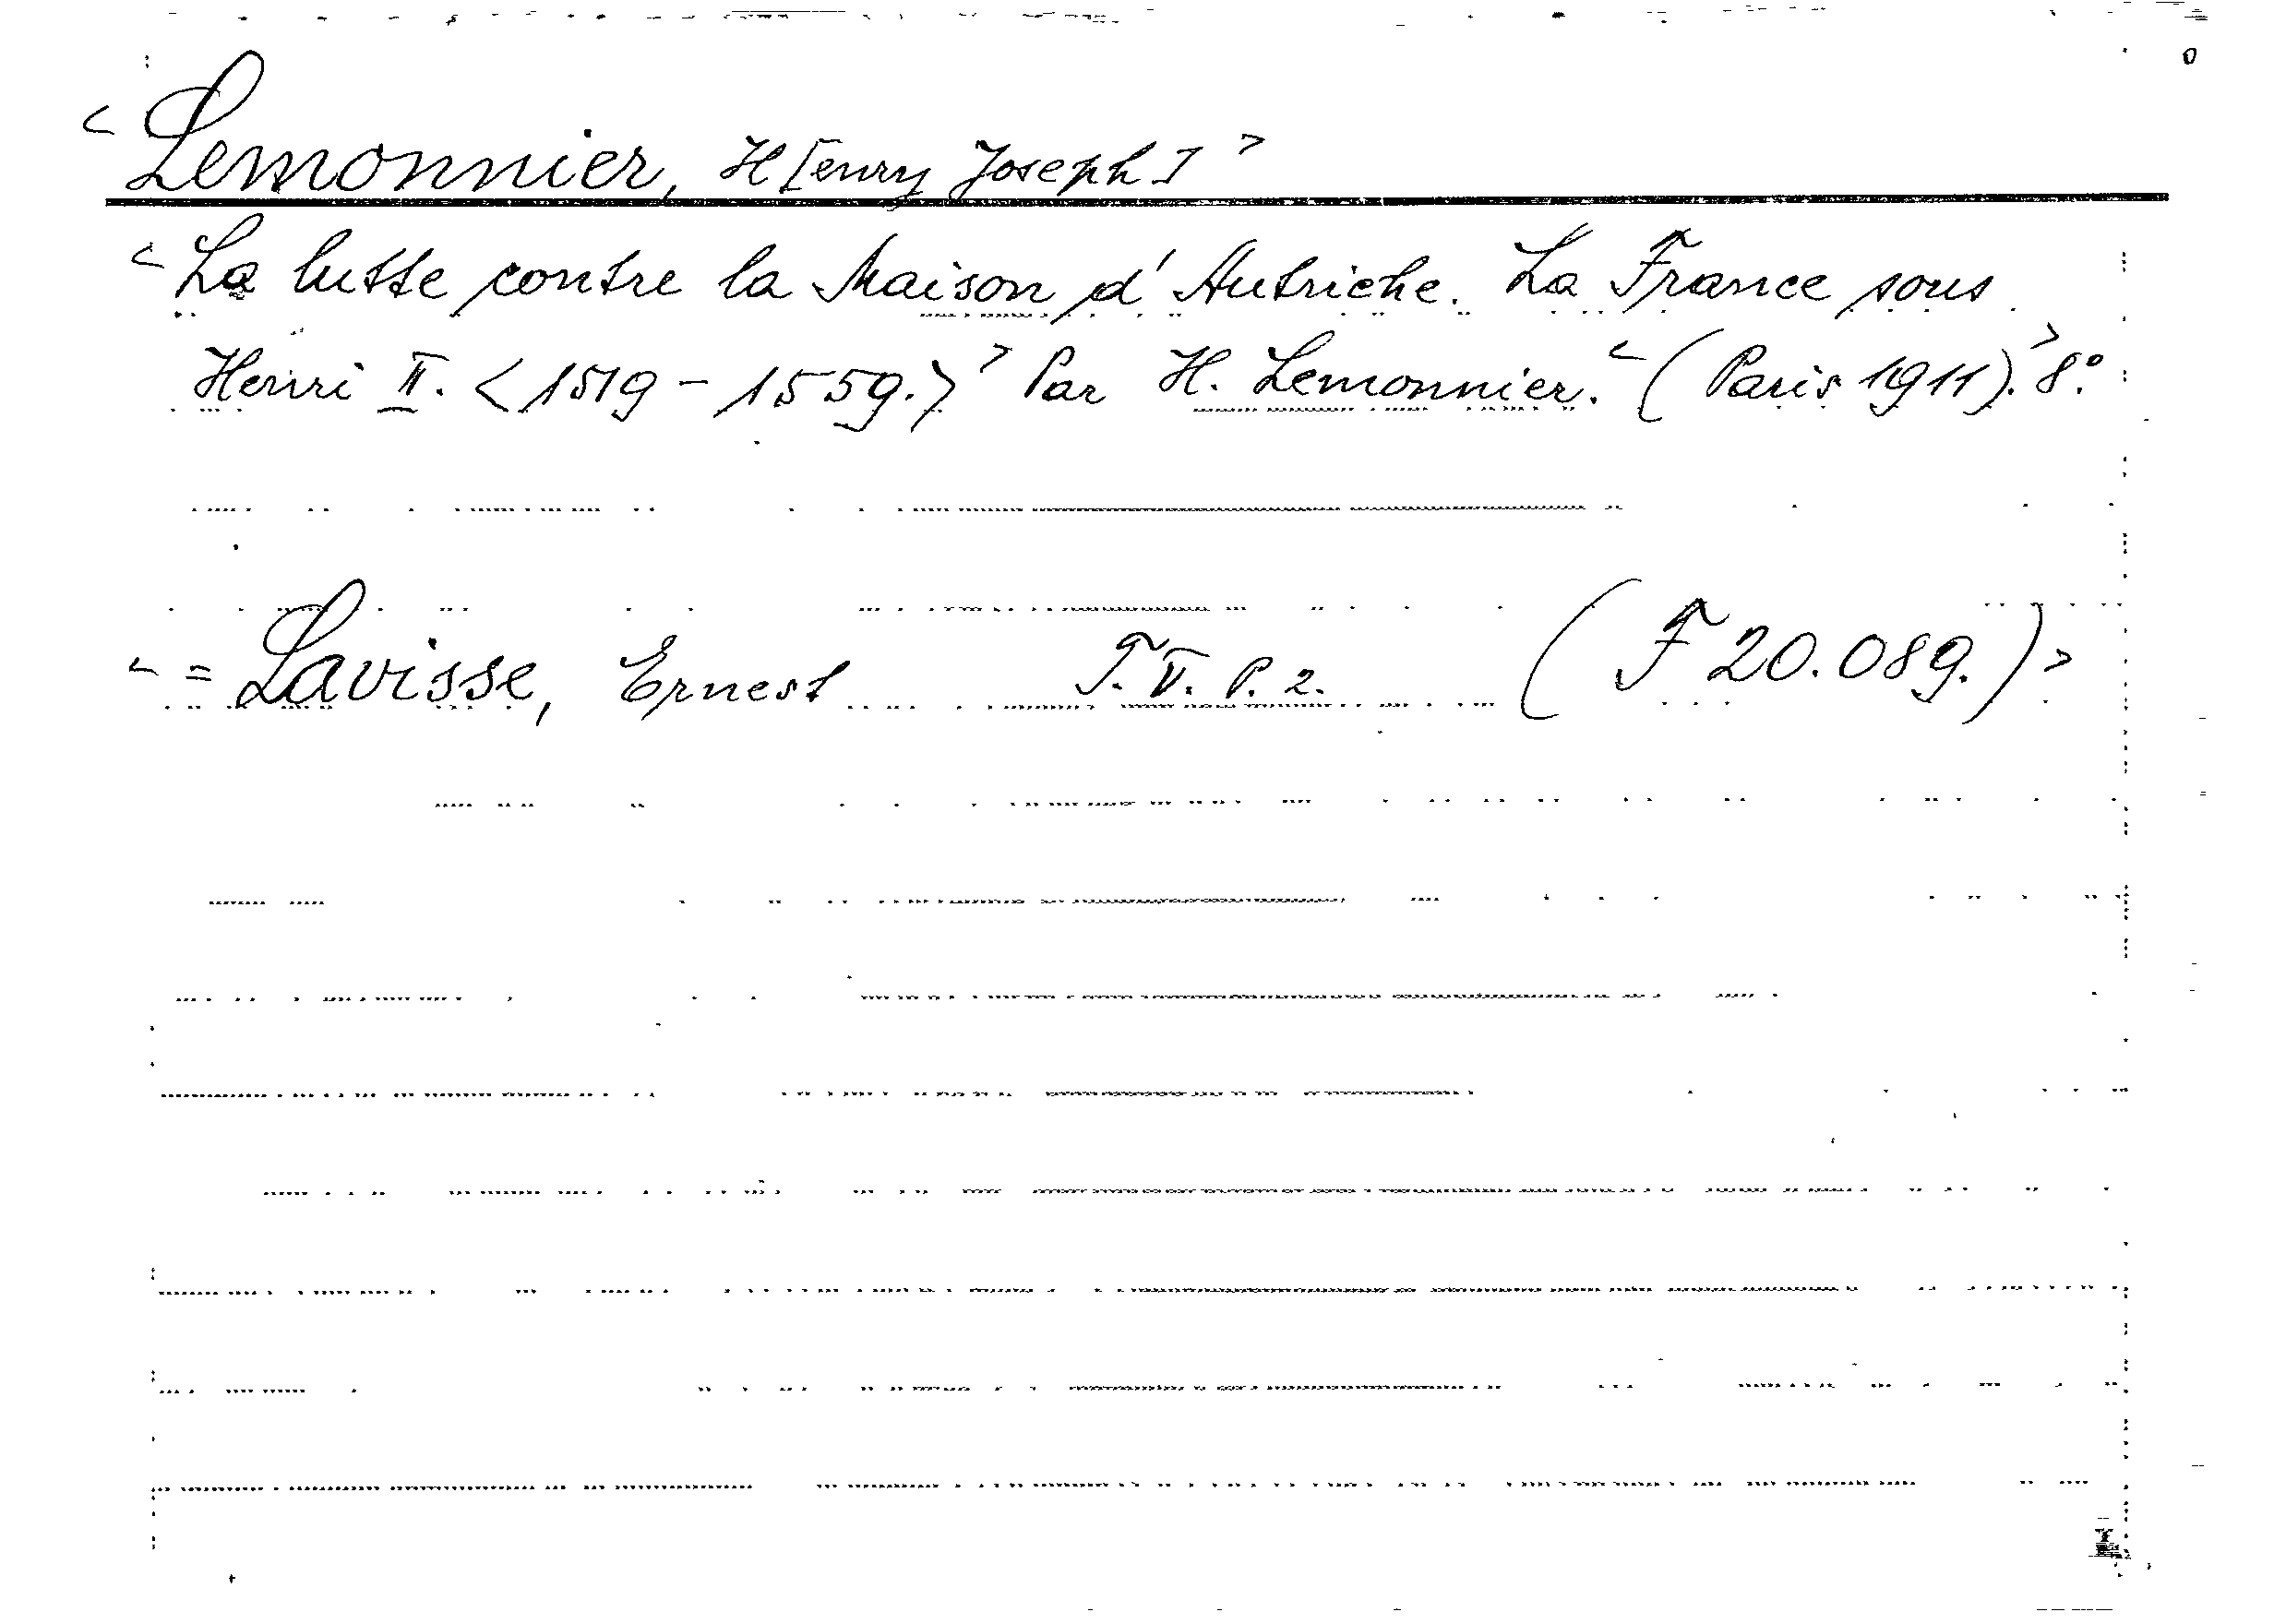 < Lemonnier, H[enry Joseph] >
< La lutte contre la Maison d'Autriche. La France sous
Henri II. <1519-1559.> > Par H. Lemonnier. < (Paris 1911). > 8°.
< = Lavisse, Ernest T. V. P. 2. (F 20.089.) >